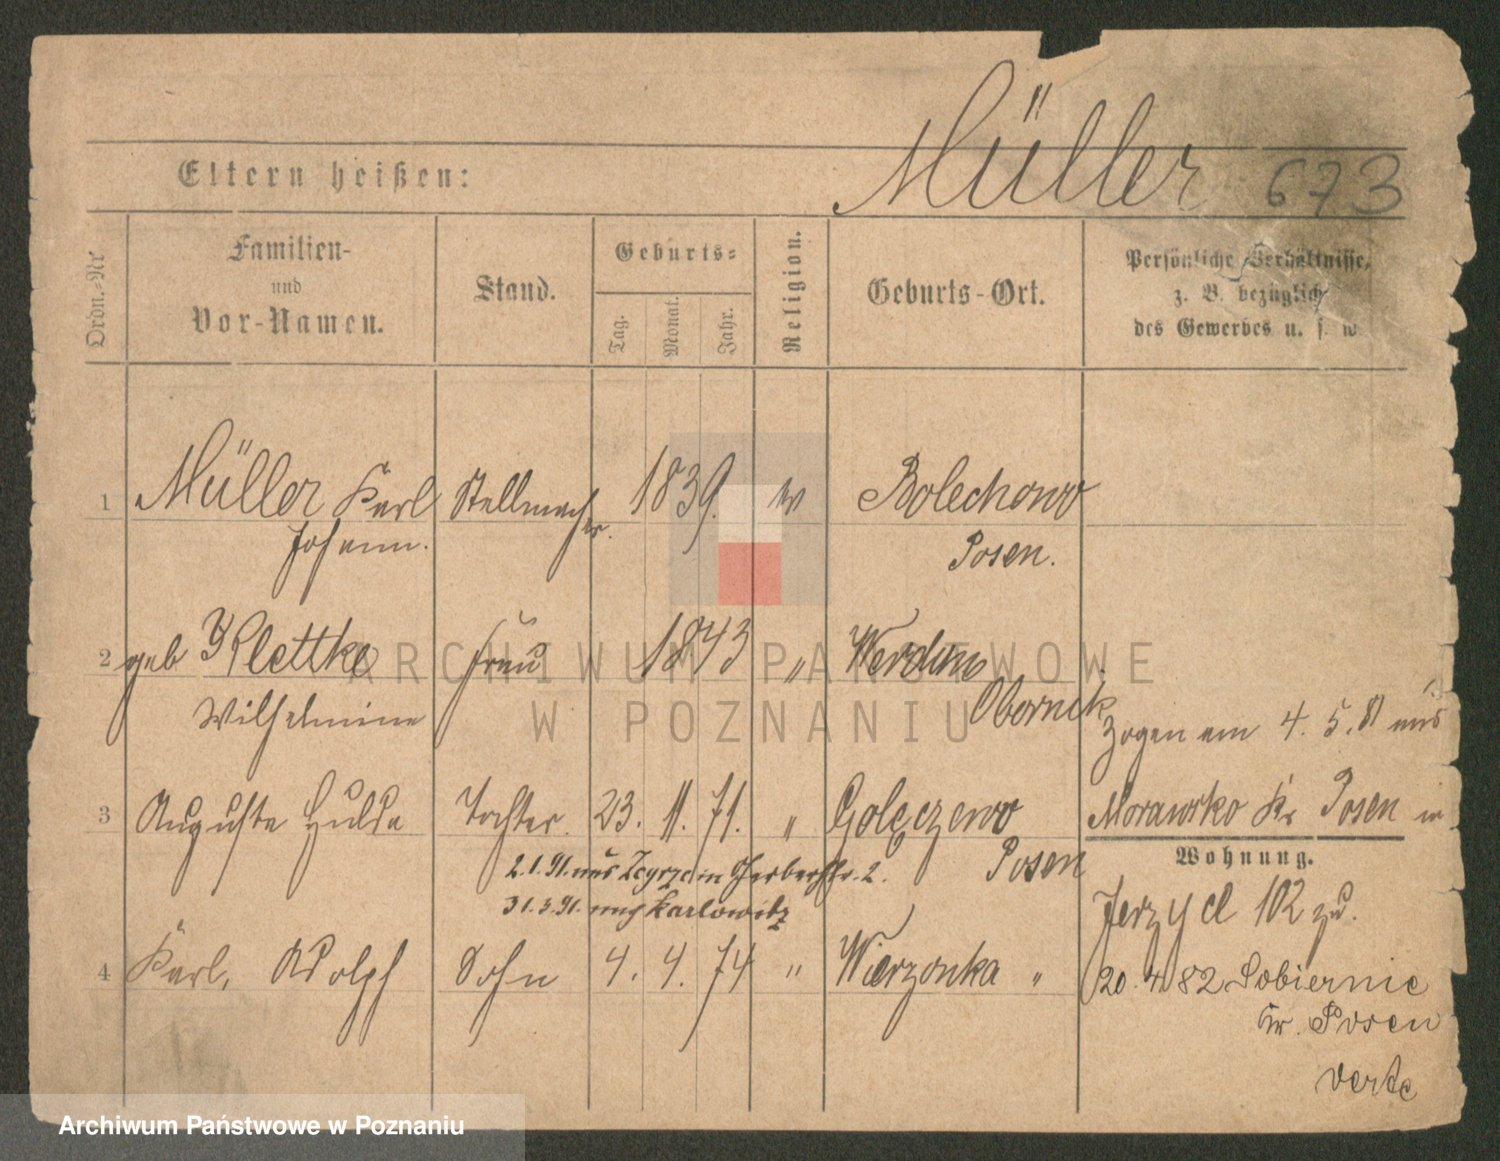 Müller 673
Eltern heißen:
Ordn.-Nr
Familien-
und
Vor-Namen.
Stand.
Geburts-
Tag.
Monat.
Jahr.
Religion.
Geburts-Ort.
Persönliche Verhältnisse,
z. B. bezüglich
des Gewerbes u. s. w
1 Müller Karl Stellmacher. 1839. w Bolechowo
Johann. Posen.
2 geb Klettke Frau 1843 " Werdum
Wilhelmine Obornik
Zogen am 4. 5. 81 aus
3 Auguste Hulda Tochter. 23. 11. 71. " Golęczewo Morawsko Kr Posen in
Posen
Wohnung.
2.1.91. aus Zegrze in Gerberstr. 2.
Jerzyce 102 zu.
31.3.91. nach Karlowitz
4 Karl, Adolph Sohn 4. 4. 74 " Wierzonka "
20. 4. 82 Sobiernie
Kr. Posen
verte
ARCHIWUM PAŃSTWOWE
W POZNANIU
Archiwum Państwowe w Poznaniu